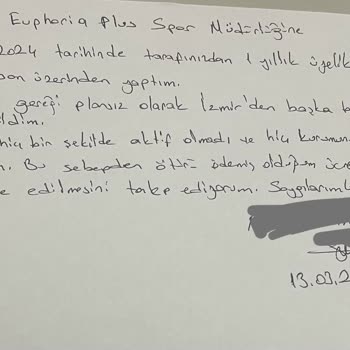 Euphoria Plus Spor Müdürlüğüne
2024 tarihinde tarafınızdan 1 yıllık üyelik
üzerinden yaptım.
gereği plansız olarak İzmir'den başka b
ldim.
hiç bir şekilde aktif olmadı ve hiç kurumun
Bu sebepden ötrü ödemiş olduğum ücre
e edilmesini talep ediyorum. Saygılarımla
13.03.2